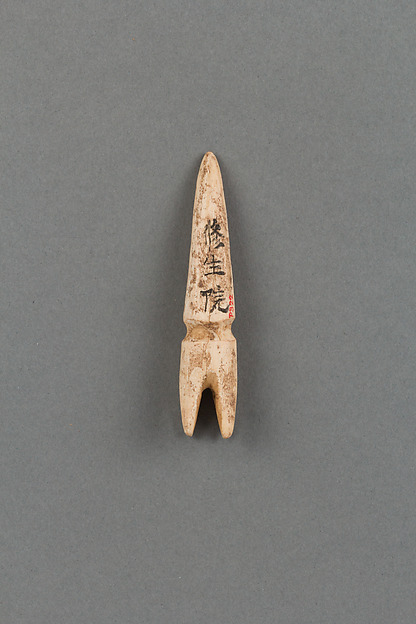 修生院